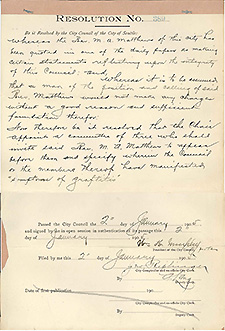 RESOLUTION No. 384
Be it Resolved by the City Council of the City of Seattle:
Whereas the Rev. M. A. Matthews of this city has
been quoted in one of the daily papers as making
certain statements reflecting upon the integrity
of this Council; and,
Whereas it is to be assumed
that a man of the position and calling of said
Rev. Matthews would not make any charges
without a good reason and sufficient
foundation therefor.
Now therefore be it resolved that the Chair
appoint a committee of three who shall
invite said Rev. M. A. Matthews to appear
before them and specify wherein the Council
or the members thereof have manifested
"symptoms of graftitis"
Passed the City Council the 2" day of January 190
and signed by me in open session in authentication of its passage this 2"
day of January 190
Wm. H. Murphy
President of the City Council
Filed by me this 2" day of January 190
City Comptroller and ex-officio City Clerk.
By
Deputy Clerk
Date of first publication 190
City Comptroller and ex-officio City Clerk.
By
Deputy Clerk